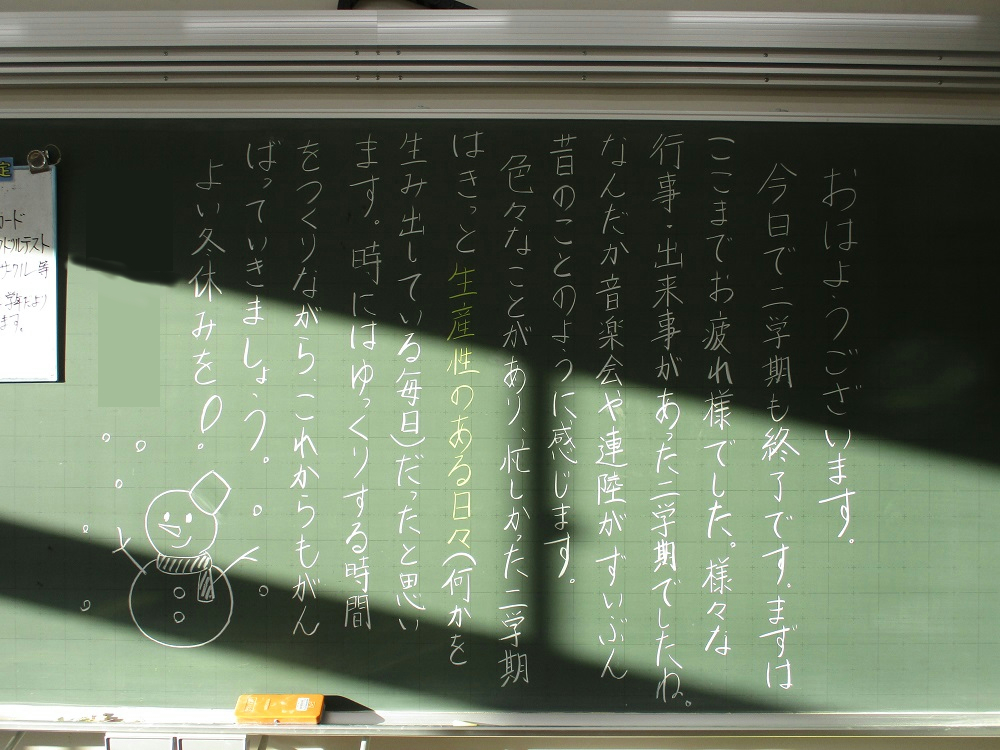 おはようございます。
今日で二学期も終了です。まずは
ここまでお疲れ様でした。様々な
行事・出来事があった二学期でしたね。
なんだか音楽会や連陸がずいぶん
昔のことのように感じます。
色々なことがあり、忙しかった二学期
はきっと生産性のある日々(何かを
生み出している毎日)だったと思い
ます。時にはゆっくりする時間
をつくりながら、これからもがん
ばっていきましょう。
よい冬休みを!
定
コード
サークル等
学年だより
ます。